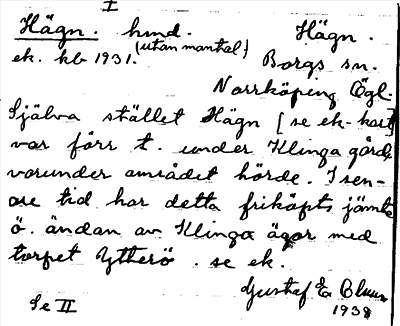 I
Hägn. hmd. Hägn.
(utan mantal)
ek. kb 1931. Borgs sn.
Norrköping Ögl.
Själva stället Hägn [se ek-kart]
var förr t. under Klinga gård,
varunder området hörde. I sen-
are tid har detta friköpts jämte
ö. ändan av Klinga ägor med
torpet Ytterö. se ek.
Gustaf E Blum
Se II 1938